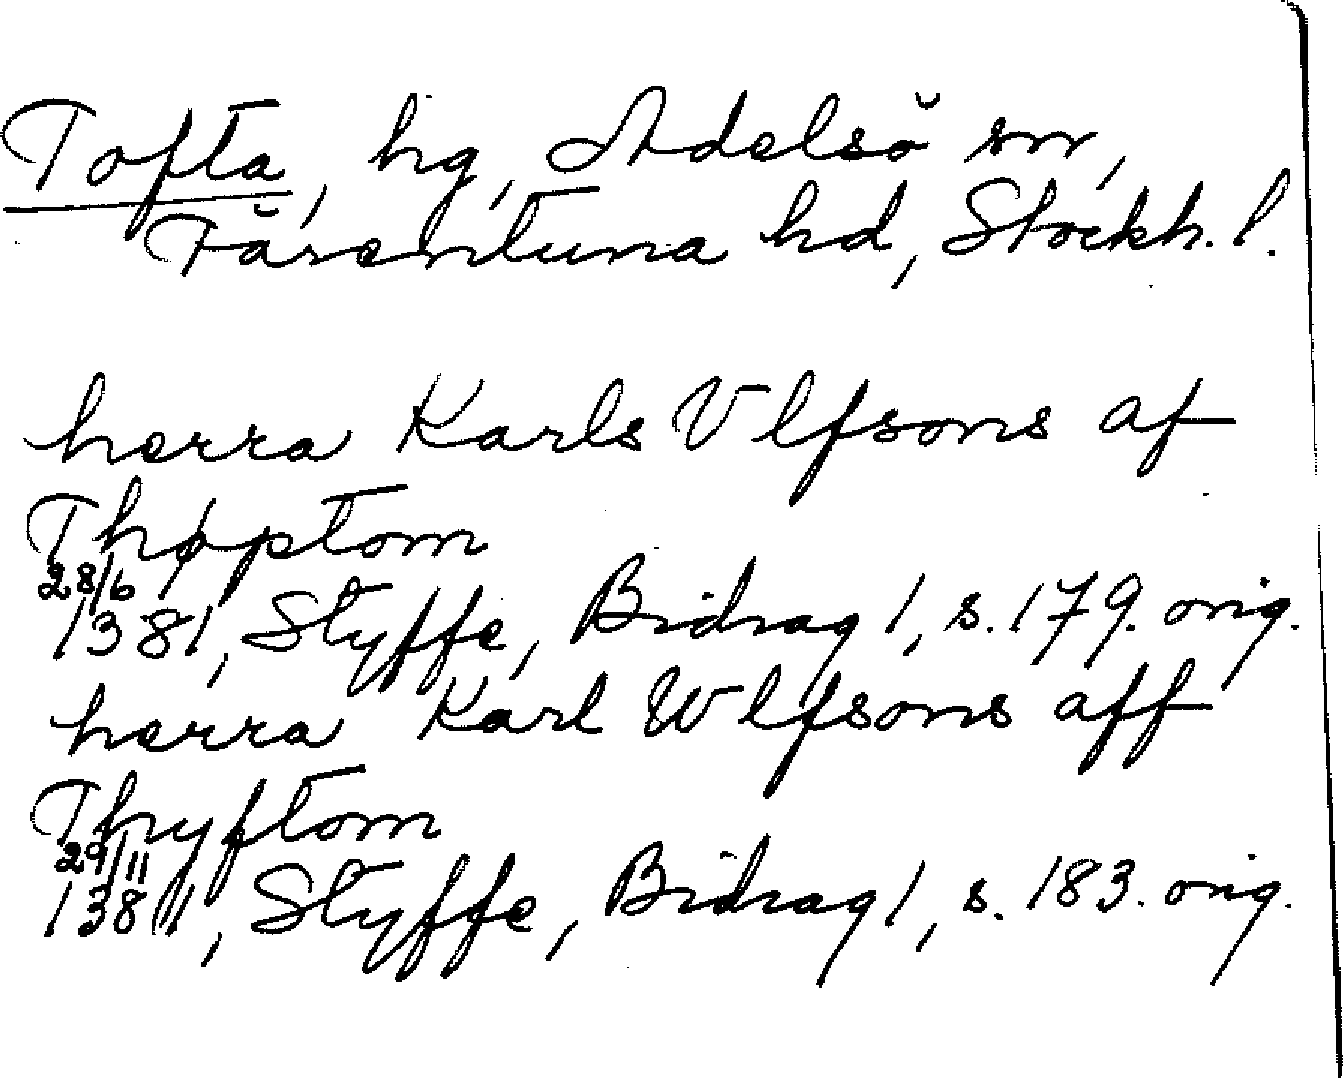 Tofta, hg, Adelsö sn,
Färentuna hd, Stockh. l.
herra Karls Vlfsons af
Thøptom
28/6
1381, Styffe, Bidrag 1, s. 179. orig.
herra Karl Wlfsons aff
Thyftom
29/11
1381, Styffe, Bidrag 1, s. 183. orig.